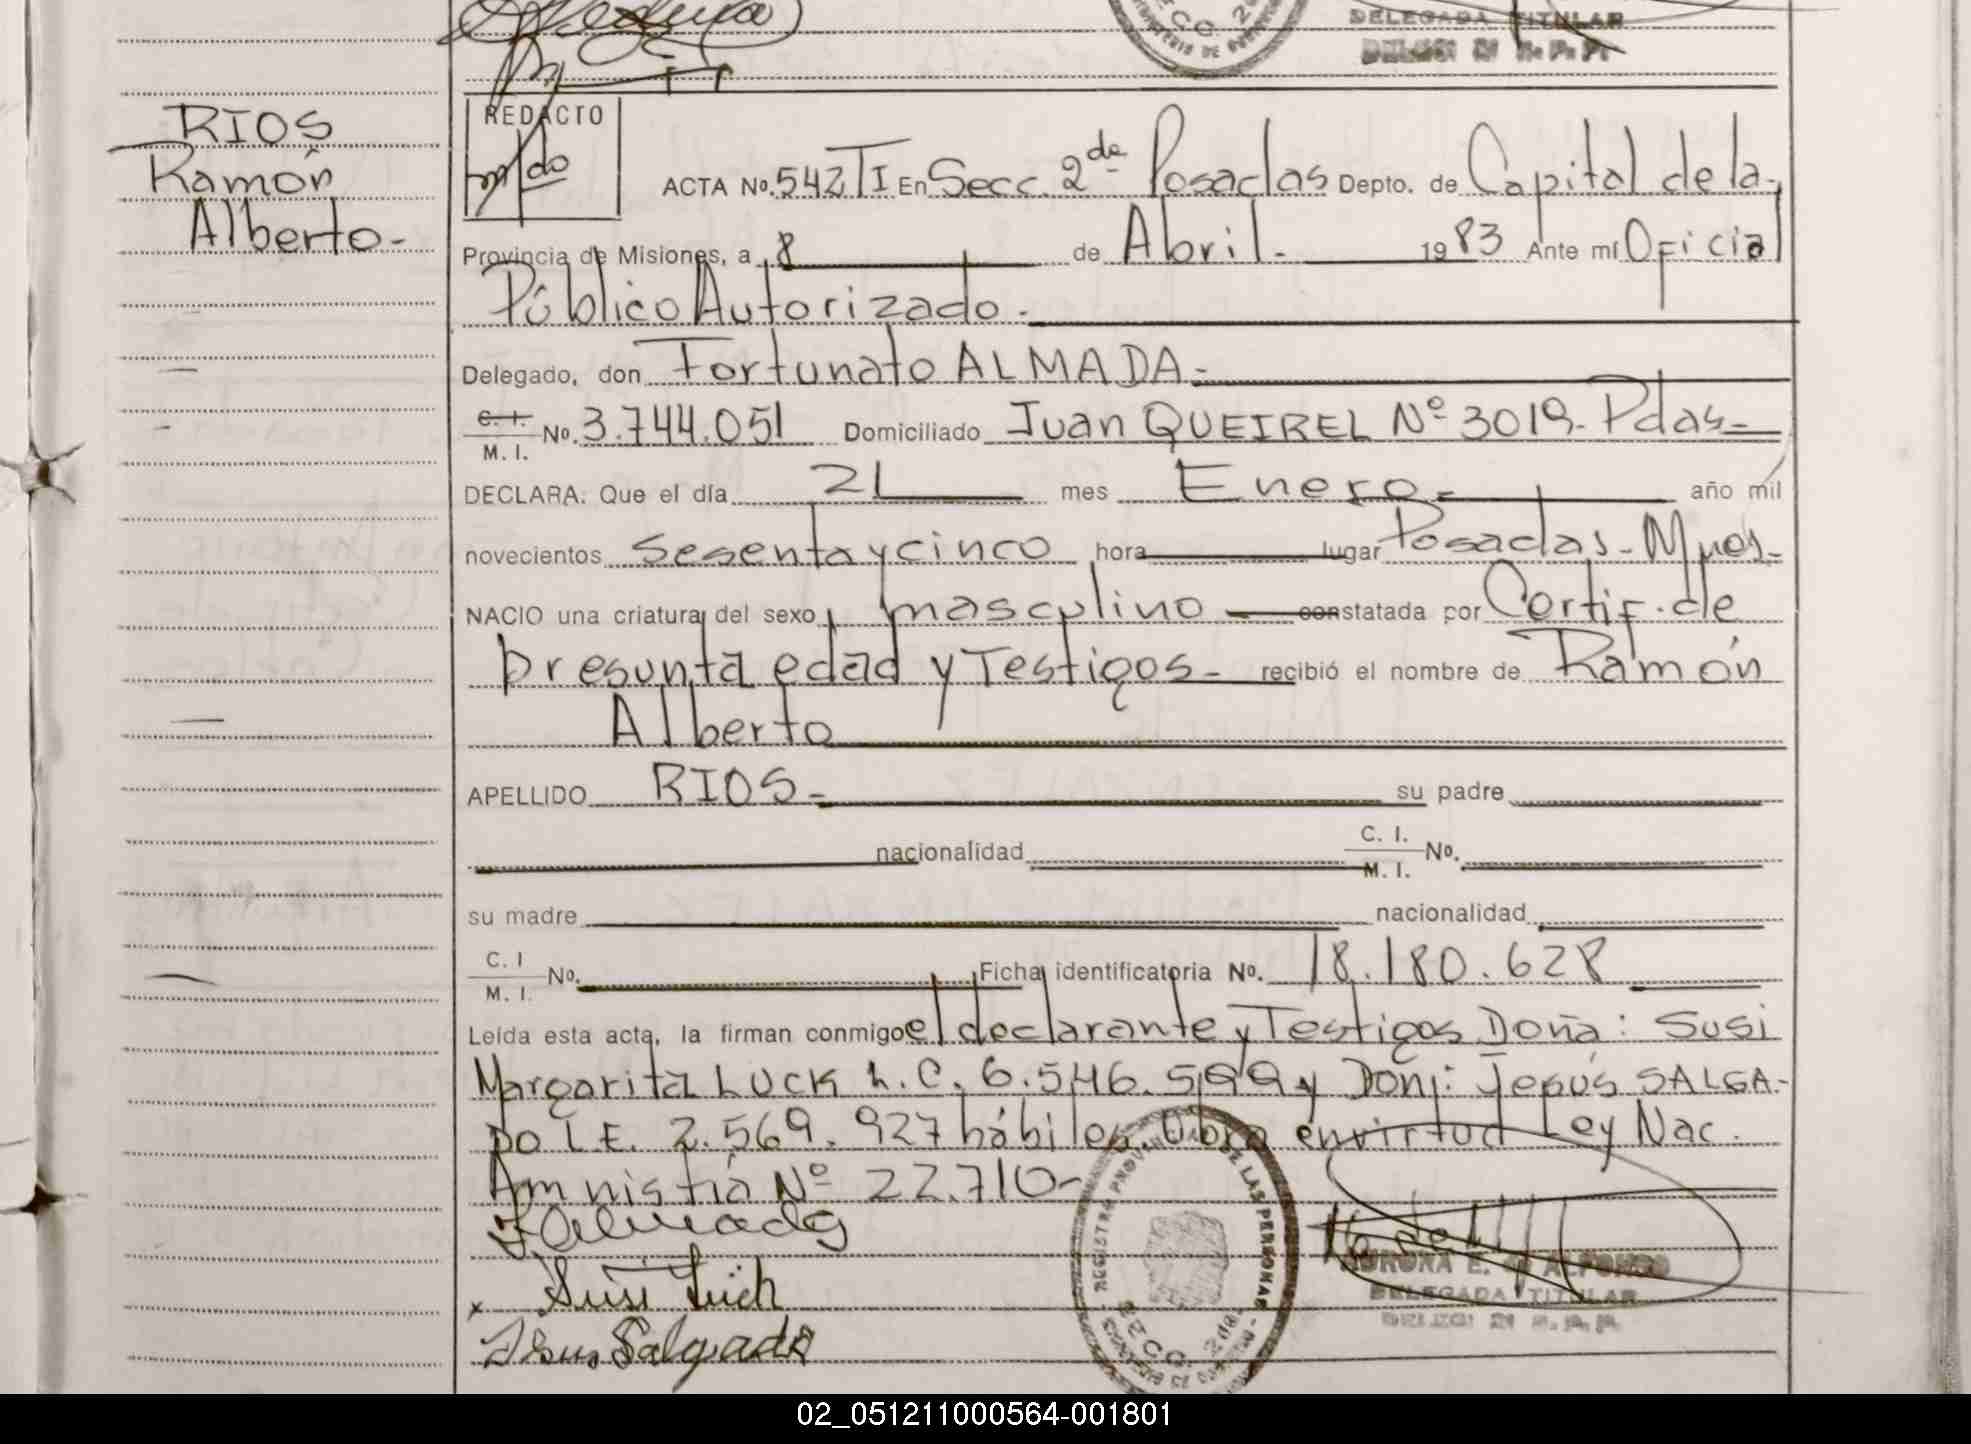 DELEGADA TITULAR
RIOS
Ramón
Alberto-
REDACTO
ACTA No. 542 TI En Secc. 2da Posadas Depto. de Capital de la
Provincia de Misiones, a 8 de Abril - 1983 Ante mí Oficial
Público Autorizado.
Delegado, don Fortunato ALMADA -
C. I. / M. I. No. 3.744.051 Domiciliado Juan QUEIREL Nº 3019- Pdas-
DECLARA: Que el día 21 mes Enero - año mil
novecientos sesenta y cinco hora lugar Posadas - Mnes-
NACIO una criatura del sexo masculino constatada por Certif. de
presunta edad y Testigos - recibió el nombre de Ramón
Alberto
APELLIDO RIOS - su padre
nacionalidad C. I. / M. I. No.
su madre nacionalidad
C. I / M. I. No. Ficha identificatoria No. 18.180.628
Leída esta acta, la firman conmigo el declarante y Testigos Doña: Susi
Margarita LUCK L.C. 6.546.599 y Don: Jesús SALGA-
DO L.E. 2.569.927 hábiles. Obra en virtud Ley Nac.
Amnistía Nº 22.710-
F Almada
x Susi Luck
Jesus Salgado
REGISTRO PROVINCIAL DE LAS PERSONAS
SECC. 2da
AURORA E. de ALFONSO
DELEGADA TITULAR
02_051211000564-001801